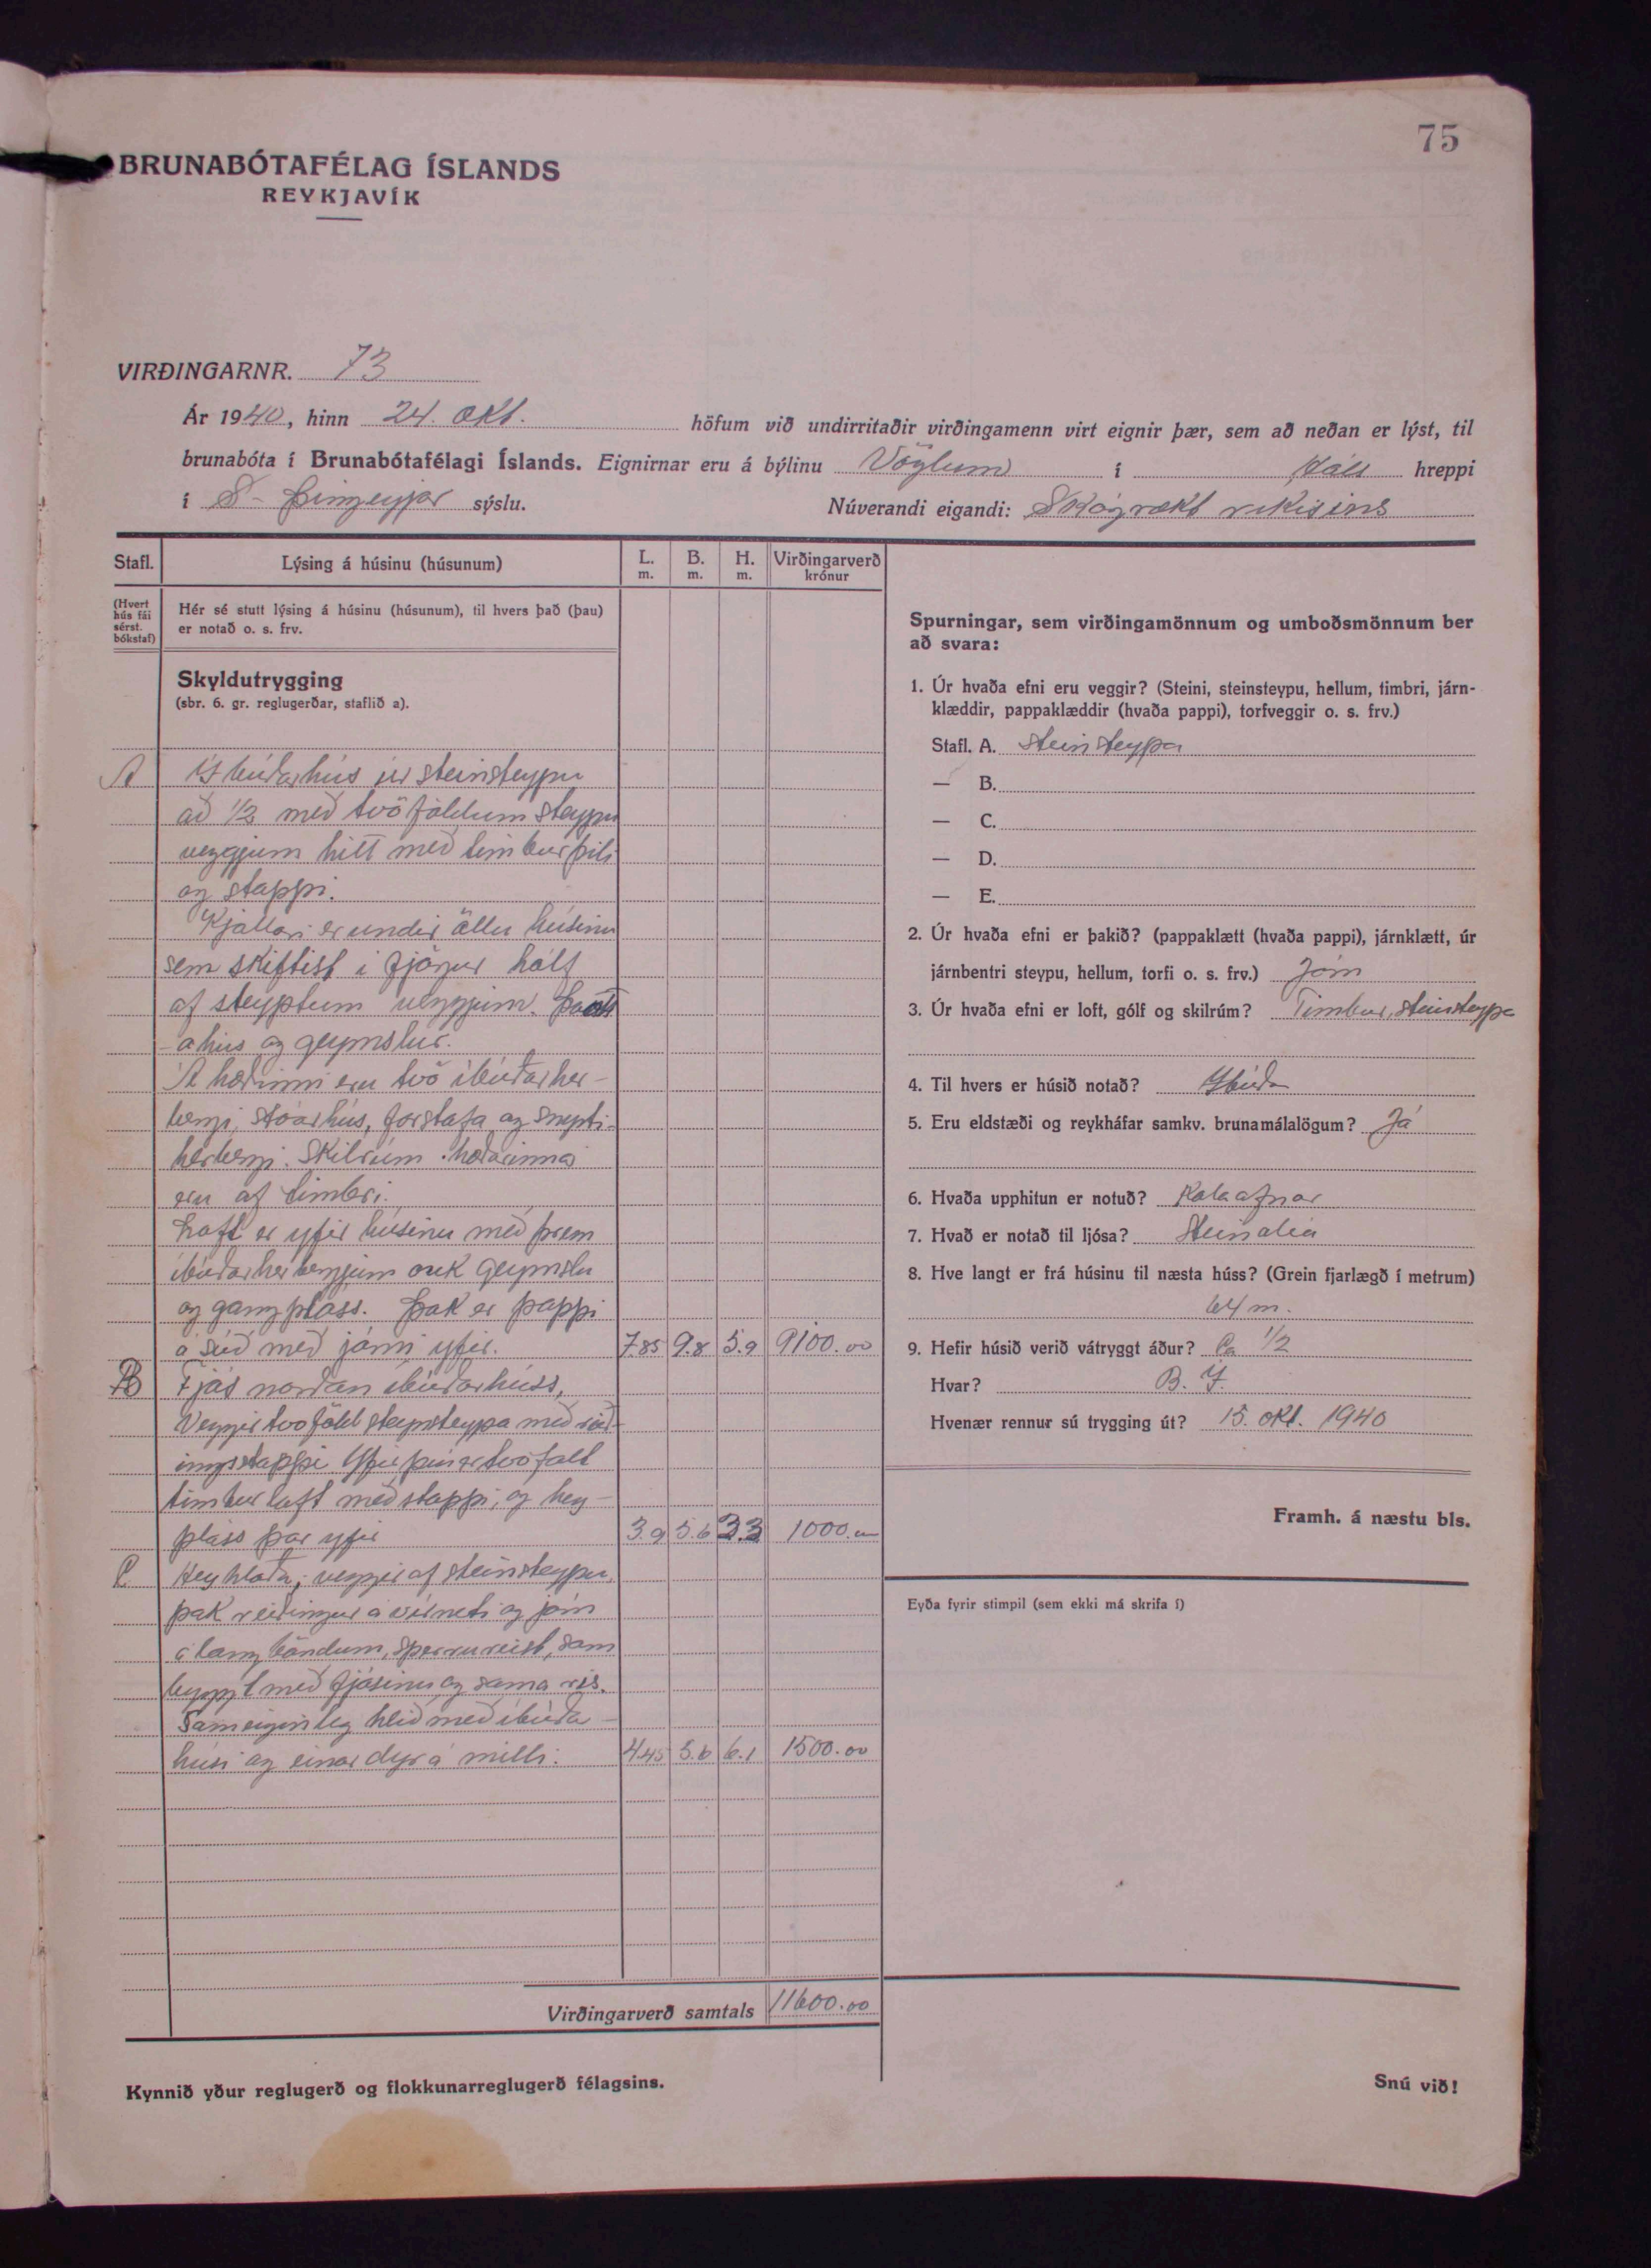 75
BRUNABÓTAFÉLAG ÍSLANDS
REYKJAVÍK
VIRÐINGARNR. 73
Ár 1940, hinn 24. okt. höfum við undirritaðir virðingamenn virt eignir þær, sem að neðan er lýst, til
brunabóta í Brunabótafélagi Íslands. Eignirnar eru á býlinu Vöglum í Háls hreppi
í S-Þingeyjar sýslu. Núverandi eigandi: Skógrækt rikisins
Stafl. Lýsing á húsinu (húsunum) L. m. B. m. H. m. Virðingarverð krónur
(Hvert hús fái sérst. bókstaf)
Hér sé stutt lýsing á húsinu (húsunum), til hvers það (þau)
er notað o. s. frv.
Skyldutrygging
(sbr. 6. gr. reglugerðar, staflið a).
A Íbúðarhús úr steinsteypu
að 1/2 með tvöföldum steypu
veggjum hitt með timburþili
og stappi.
Kjallari er undir öllu húsinu
sem skiftist i fjögur hólf
af steyptum veggjum.
og geymslur.
Á hæðinni eru tvö íbúðarher-
bergi, stóarhús, forstofa og snyrti-
herbergi. Skilrúm hæðarinnar
eru af timbri.
Loft er yfir húsinu með þrem
íbúðarherbergjum auk geymslu
og gangpláss. Þak er pappi
á súð með járni yfir. 7.85 9.8 5.9 9100.00
B Fjós norðan íbúðarhúss,
Veggir tvöföld steinsteypa með reið-
ingsstappi Yfir því er tvöfalt
timburloft með stappi, og hey-
pláss þar yfir 3.9 5.6 3.3 1000.00
C Heyhlaða, veggir af steinsteypu,
þak reiðingur á vírneti og járn
á langböndum, sperrureist, sam
byggt með fjósinu og sama ris.
Sameiginleg hlið með íbúða-
húsi og einar dyr á milli. 4.45 5.6 6.1 1500.00
Virðingarverð samtals 11600.00
Spurningar, sem virðingamönnum og umboðsmönnum ber
að svara:
1. Úr hvaða efni eru veggir? (Steini, steinsteypu, hellum, timbri, járn-
klæddir, pappaklæddir (hvaða pappi), torfveggir o. s. frv.)
Stafl. A. Steinsteypa
— B.
— C.
— D.
— E.
2. Úr hvaða efni er þakið? (pappaklætt (hvaða pappi), járnklætt, úr
járnbentri steypu, hellum, torfi o. s. frv.) Járn
3. Úr hvaða efni er loft, gólf og skilrúm? Timbur, steinsteypa
4. Til hvers er húsið notað? Íbúða
5. Eru eldstæði og reykháfar samkv. brunamálalögum? Já
6. Hvaða upphitun er notuð? Kolaofnar
7. Hvað er notað til ljósa? Steinolía
8. Hve langt er frá húsinu til næsta húss? (Grein fjarlægð í metrum)
64 m.
9. Hefir húsið verið vátryggt áður? Ca 1/2
Hvar? B. Í.
Hvenær rennur sú trygging út? 15. okt. 1940
Framh. á næstu bls.
Eyða fyrir stimpil (sem ekki má skrifa í)
Kynnið yður reglugerð og flokkunarreglugerð félagsins.
Snú við!